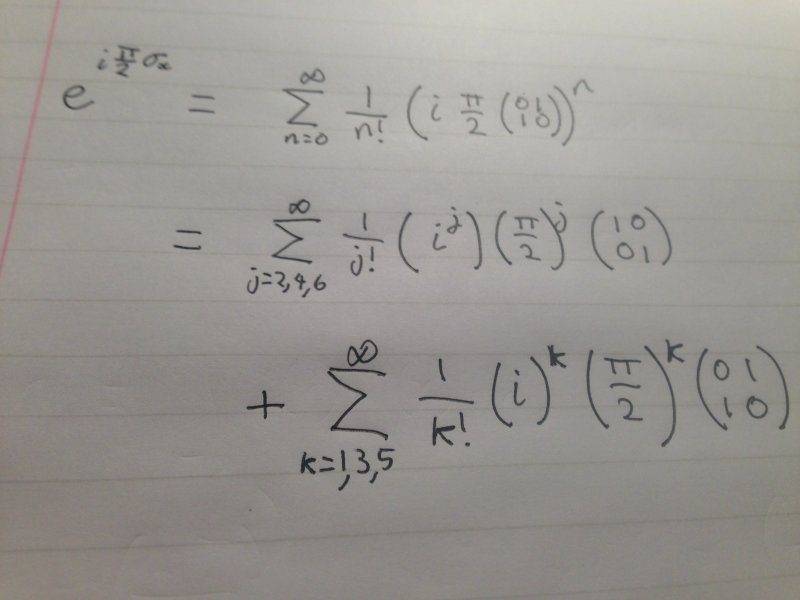 e^{i \frac{π}{2} σ_x} = \sum_{n=0}^{∞} \frac{1}{n!} \left( i \frac{π}{2} \begin{pmatrix} 0 & 1 \\ 1 & 0 \end{pmatrix} \right)^n
= \sum_{j=2,4,6}^{∞} \frac{1}{j!} \left( i^j \right) \left( \frac{π}{2} \right)^j \begin{pmatrix} 1 & 0 \\ 0 & 1 \end{pmatrix}
+ \sum_{k=1,3,5}^{∞} \frac{1}{k!} \left( i \right)^k \left( \frac{π}{2} \right)^k \begin{pmatrix} 0 & 1 \\ 1 & 0 \end{pmatrix}